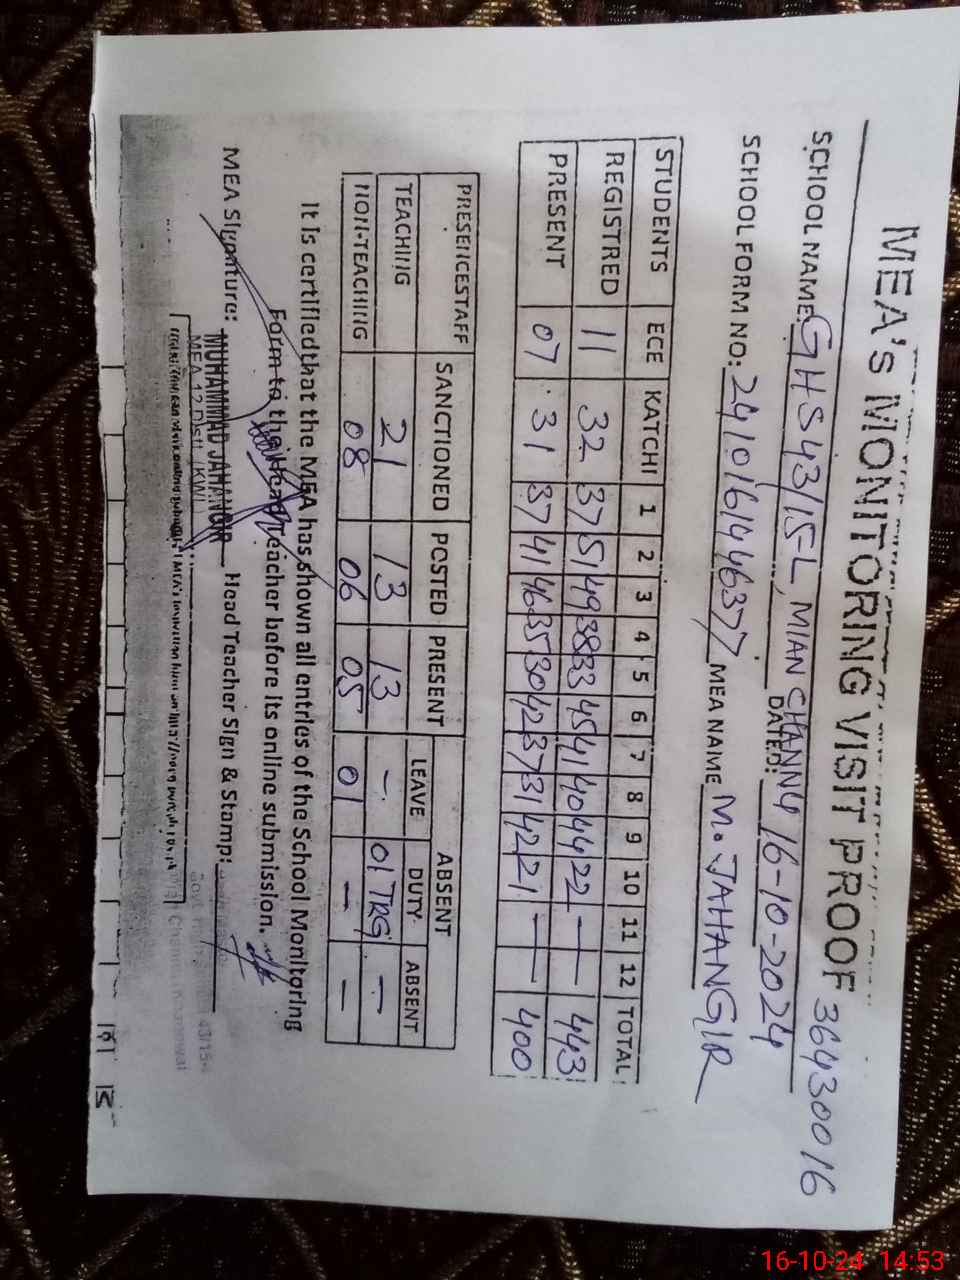 MEA's MONITORING VISIT PROOF
36430016
SCHOOL NAME: GHS 43/15-L, MIAN CHANNU DATED: 16-10-2024
SCHOOL FORM NO: 2410161446377 MEA NAME M. JAHANGIR
STUDENTS ECE KATCHI 1 2 3 4 5 6 7 8 9 10 11 12 TOTAL
REGISTRED 11 32 37 51 49 38 33 45 41 40 44 22 — — 443
PRESENT 07 31 37 41 46 35 30 42 37 31 42 21 — — 400
PRESENCESTAFF SANCTIONED POSTED PRESENT ABSENT
LEAVE DUTY ABSENT
TEACHING 21 13 13 - 01 TRG —
NON-TEACHING 08 06 05 01 — —
It is certified that the MEA has shown all entries of the School Monitoring
Form to the Head Teacher before its online submission.
MEA Signature: MUHAMMAD JAHANGIR Head Teacher Sign & Stamp:
MEA 12 Distt. KWL
16-10-24 14:53